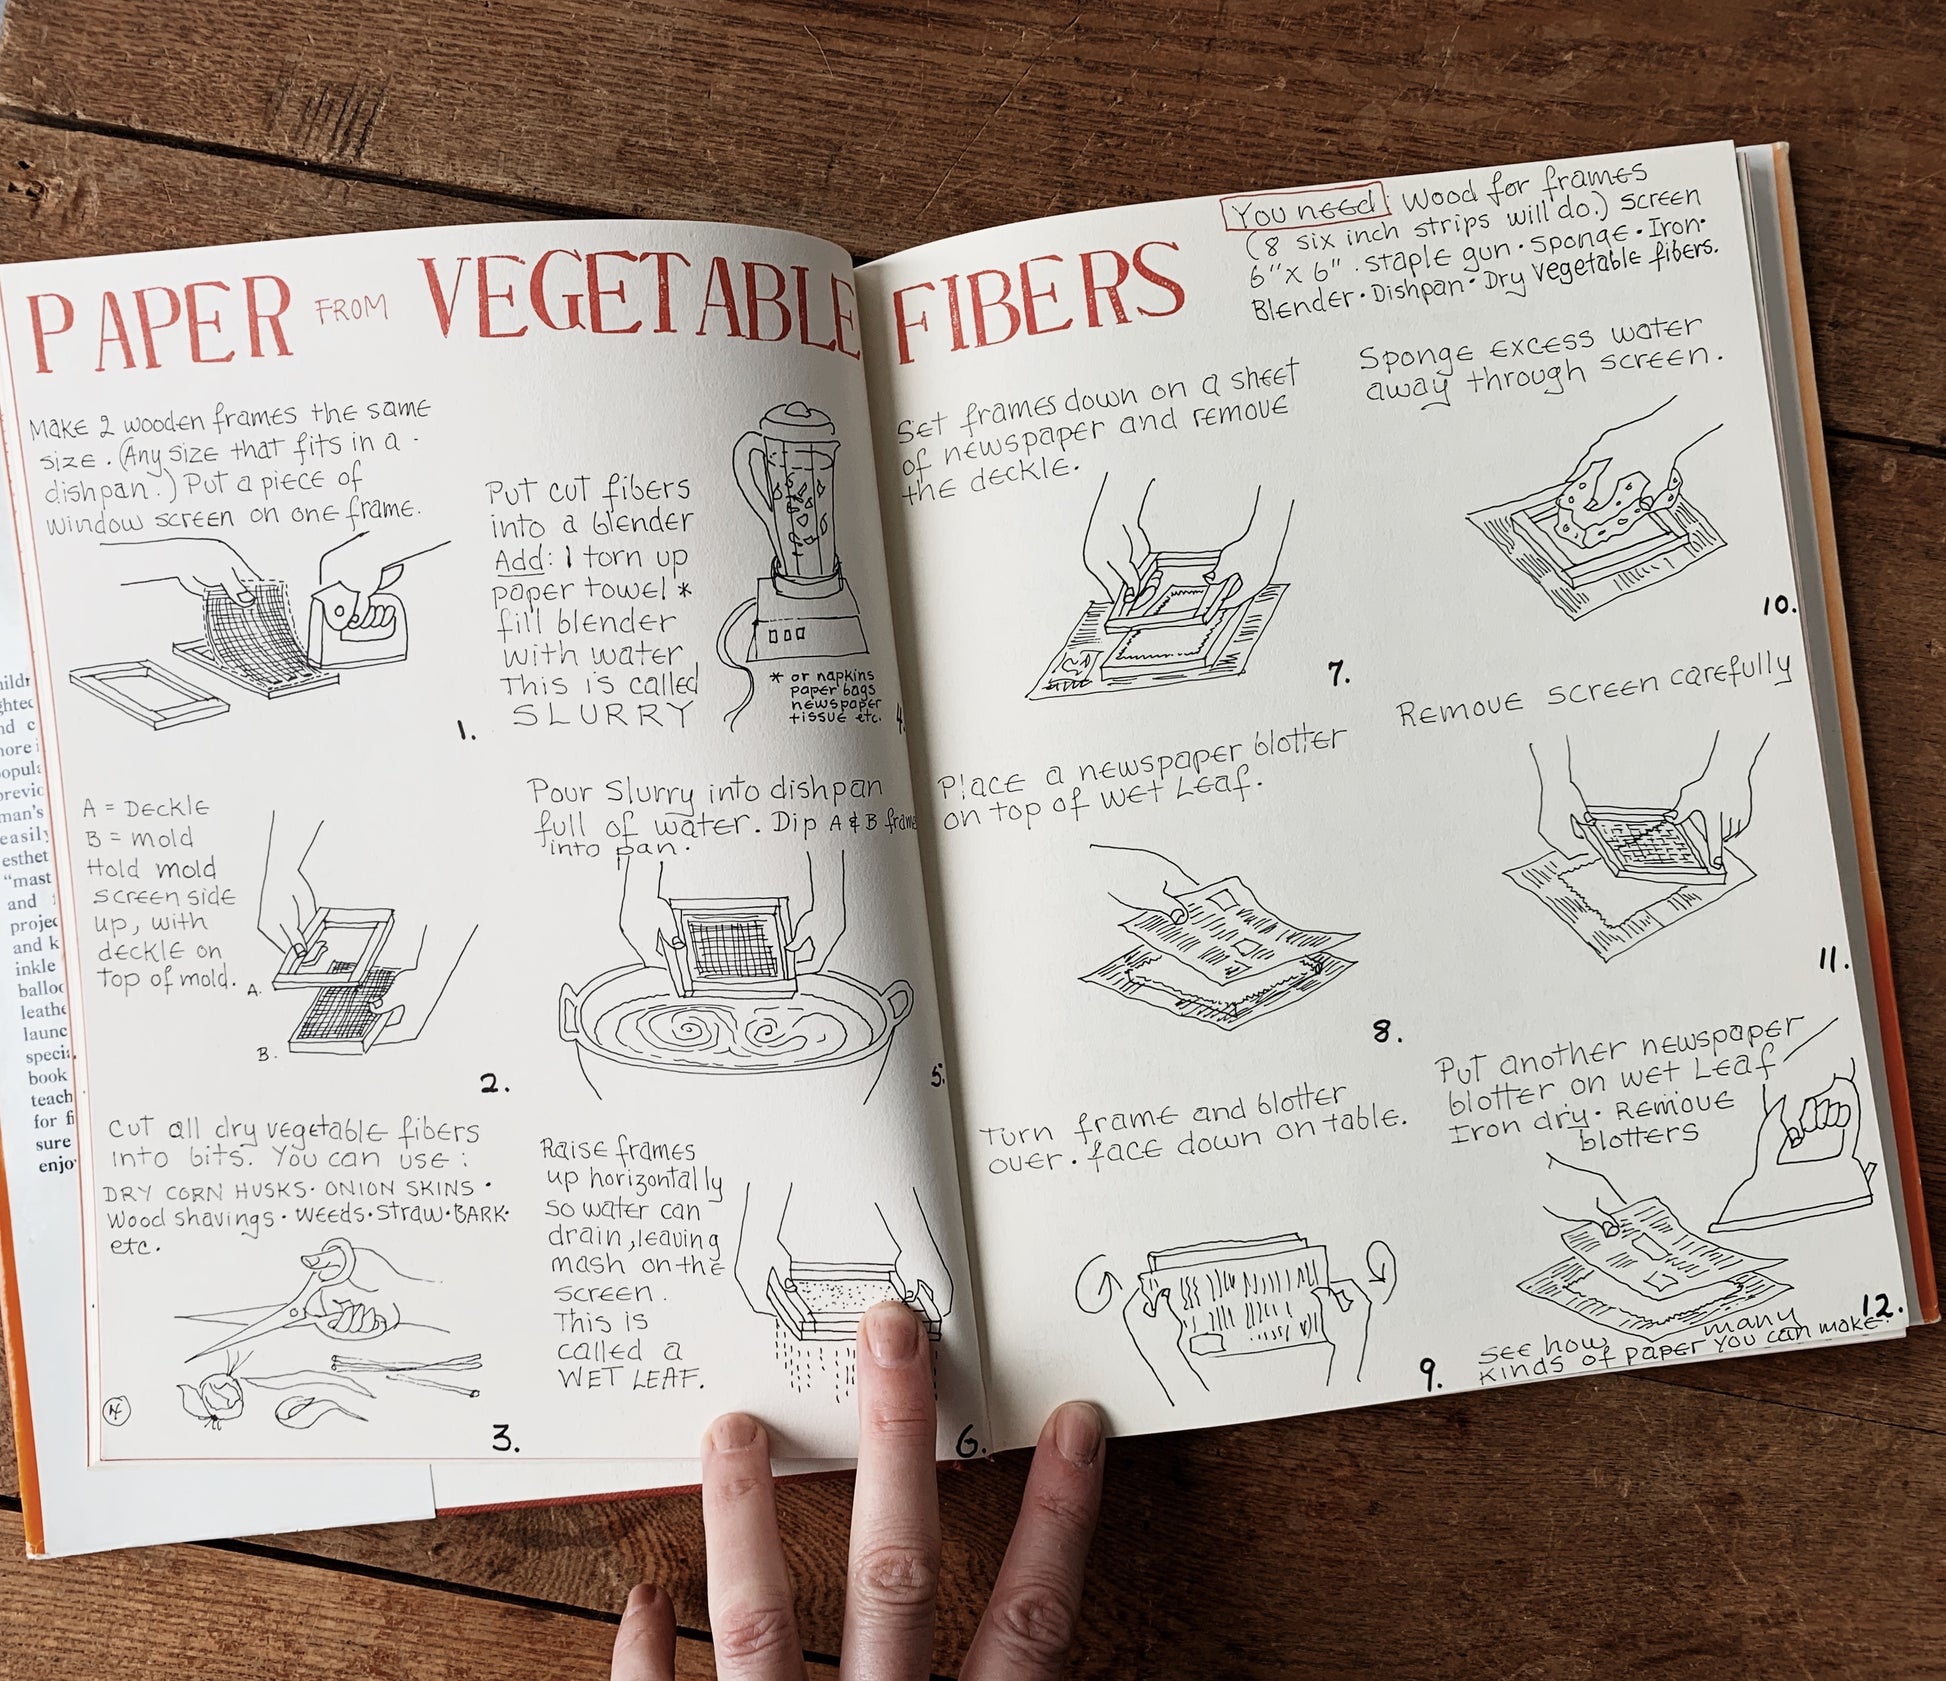 PAPER FROM VEGETABLE FIBERS
You need: Wood for frames
(8 six inch strips will do.) screen
6"x 6" · staple gun · sponge · Iron ·
Blender · Dishpan · Dry vegetable fibers.
Make 2 wooden frames the same
size. (Any size that fits in a
dishpan.) Put a piece of
window screen on one frame.
1.
A = Deckle
B = mold
Hold mold
screen side
up, with
deckle on
top of mold.
A.
B.
2.
Cut all dry vegetable fibers
into bits. You can use:
DRY CORN HUSKS · ONION SKINS ·
Wood shavings · weeds · straw · BARK ·
etc.
3.
Put cut fibers
into a blender
Add: 1 torn up
paper towel *
fill blender
with water
This is called
SLURRY
* or napkins
paper bags
newspaper
tissue etc.
4.
Pour Slurry into dishpan
full of water. Dip A & B frame
into pan.
5.
Raise frames
up horizontally
so water can
drain, leaving
mash on the
screen.
This is
called a
WET LEAF.
6.
Set frames down on a sheet
of newspaper and remove
the deckle.
7.
Place a newspaper blotter
on top of wet Leaf.
8.
Turn frame and blotter
over. face down on table.
9.
Sponge excess water
away through screen.
10.
Remove screen carefully
11.
Put another newspaper
blotter on wet Leaf
Iron dry. Remove
blotters
12.
See how many
kinds of paper you can make.
ighted
nd c
more i
opula
previc
man's
easily
esthet
"mast
and
projec
and k
inkle
balloc
leathe
launc
specia
book
teach
for fi
sure
enjo